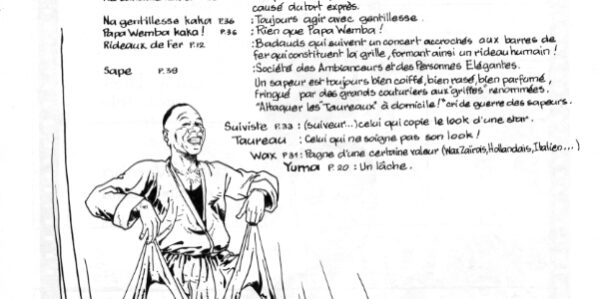 causé du tort exprès.
Na gentillesse kaka P.36 : Toujours agir avec gentillesse.
Papa Wemba kaka! P.36 : Rien que Papa Wemba!
Rideaux de Fer P.12 : Badauds qui suivent un concert accrochés aux barres de
fer qui constituent la grille, formant ainsi un rideau humain!
Sape P.39 : Société des Ambianceurs et des Personnes Elégantes.
Un sapeur est toujours bien coiffé, bien rasé, bien parfumé,
fringué par des grands couturiers aux "griffes" renommées.
"Attaquer les "Taureaux" à domicile!" cri de guerre des sapeurs.
Suiviste P.33 : (suiveur...) celui qui copie le look d'une star.
Taureau : Celui qui ne soigne pas son look!
Wax P.31 : Pagne d'une certaine valeur (Wax Zaïrois, Hollandais, Italien...)
Yuma P.20 : Un lâche.